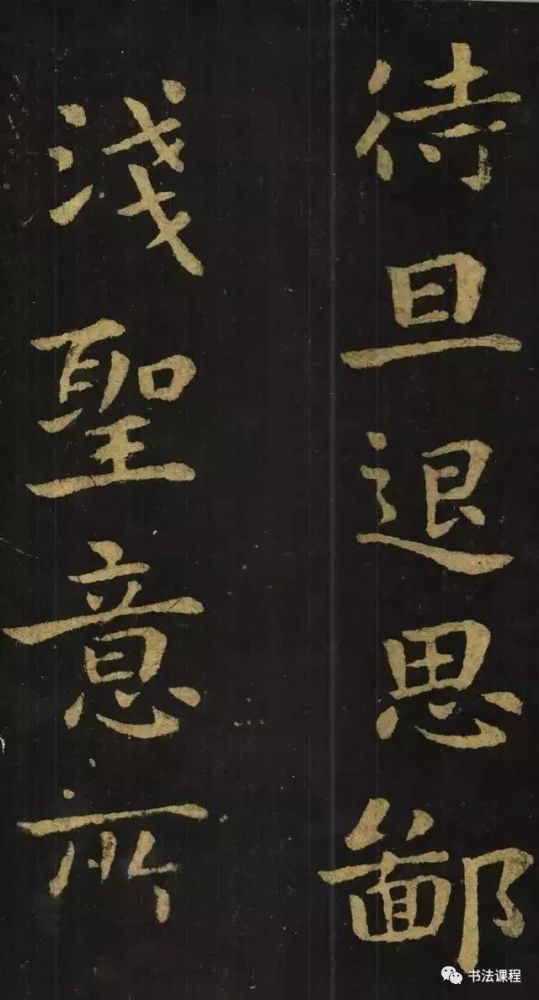 待旦退思鄙
淺聖意所
书法课程